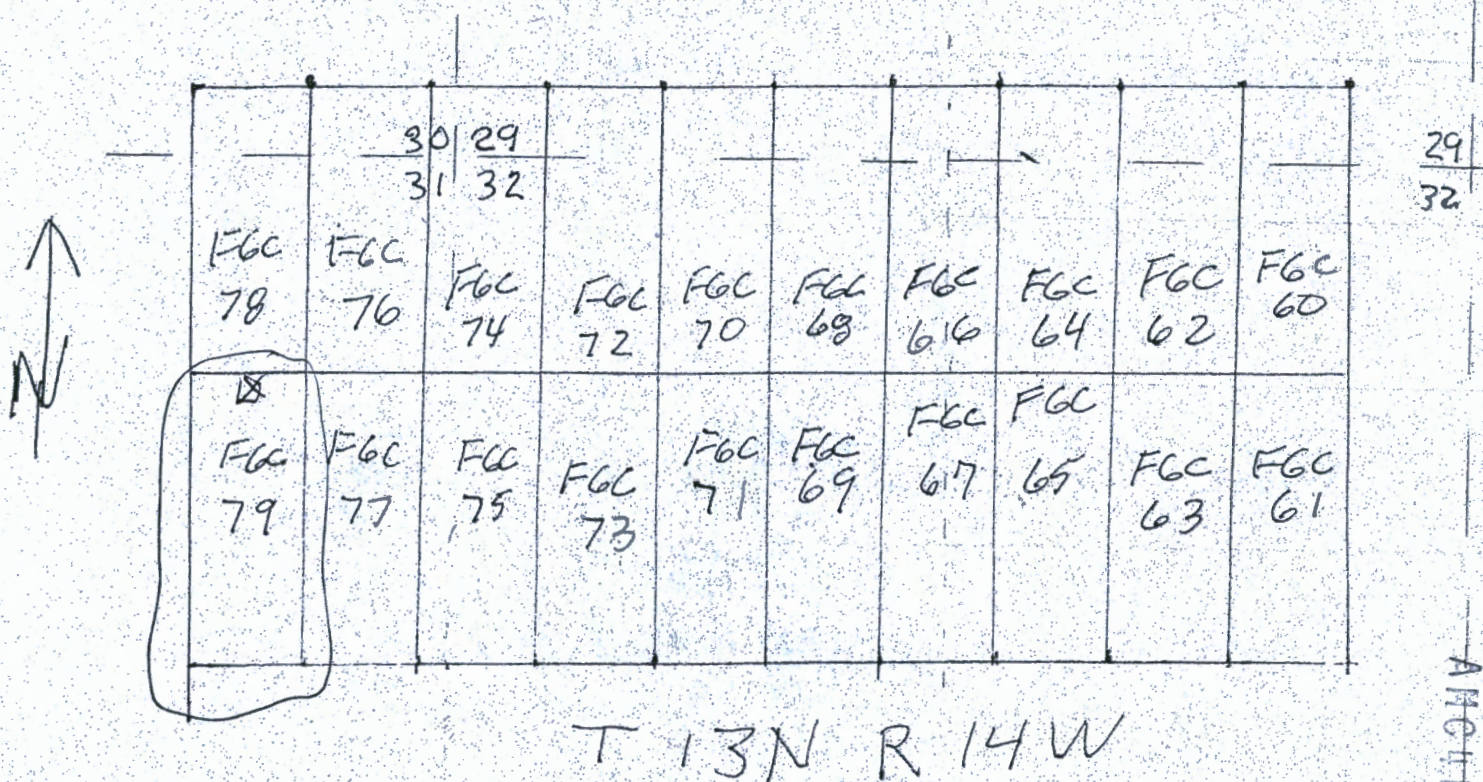 30 29
31 32
29
32
N
FGC
78
FGC
76
FGC
74
FGC
72
FGC
70
FGC
68
FGC
66
FGC
64
FGC
62
FGC
60
FGC
79
FGC
77
FGC
75
FGC
73
FGC
71
FGC
69
FGC
67
FGC
65
FGC
63
FGC
61
T 13N R 14W